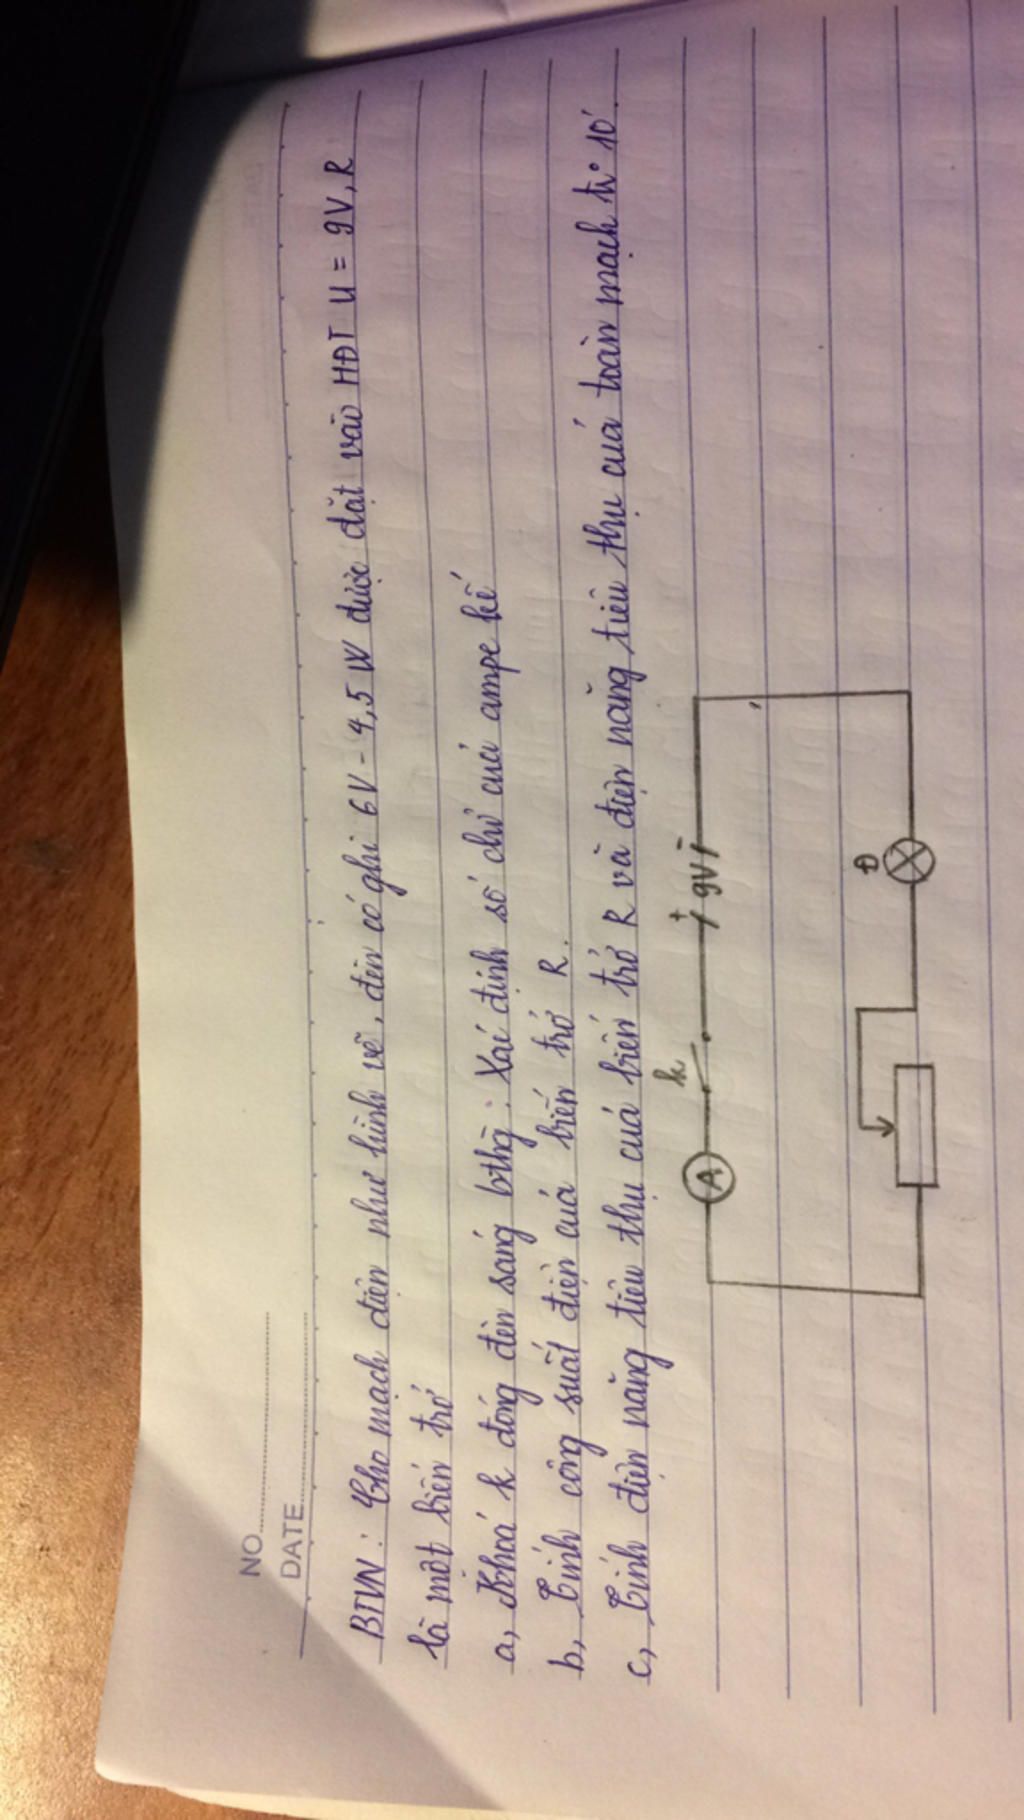 NO.
DATE
BTVN : Cho mạch điện như hình vẽ, đèn có ghi 6V - 4,5W được đặt vào HĐT U = 9V, R
là một biến trở
a, Khoá k đóng đèn sáng bthg : Xác định số chỉ của ampe kế
b, Tính công suất điện của biến trở R.
c, Tính điện năng tiêu thụ của biến trở R và điện năng tiêu thụ của toàn mạch tr° 10'.
A k + 9V -
Đ